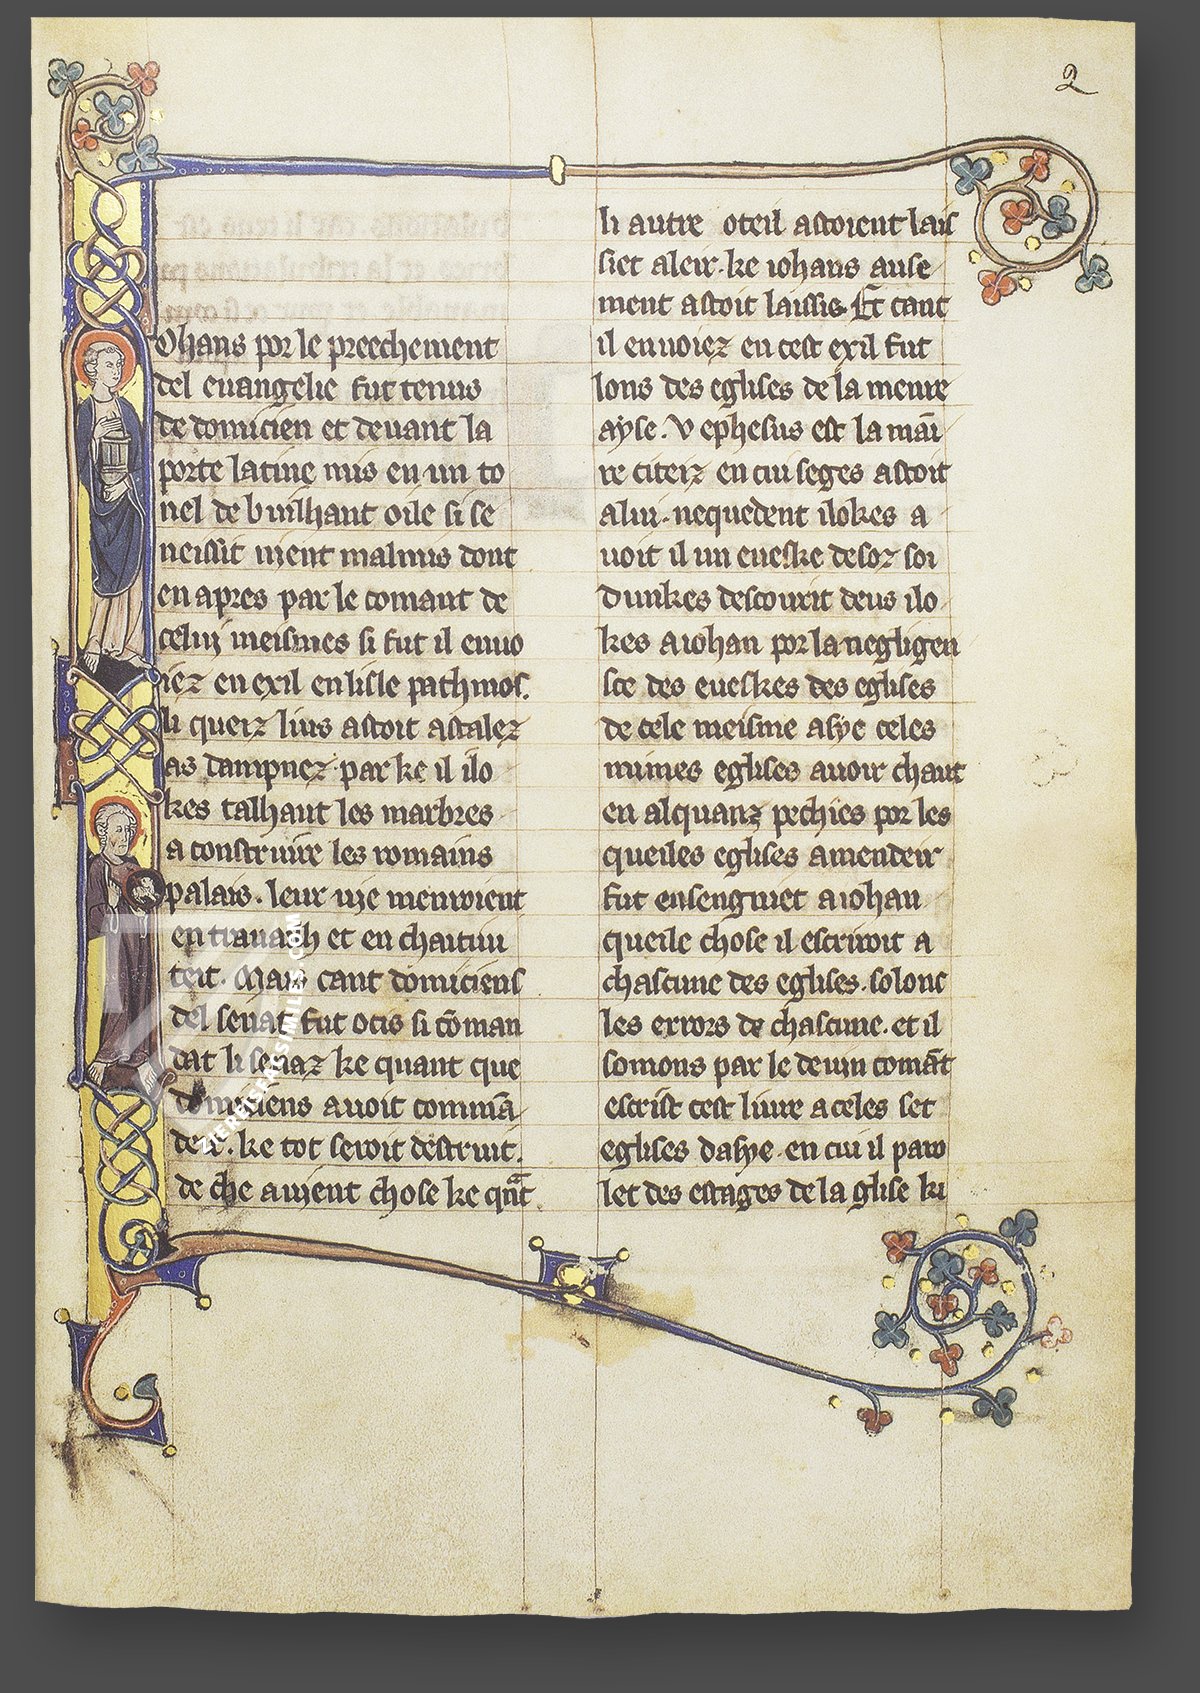 2
Ohans por le preechement
del euangelie fut tenus
de domicien et deuant la
porte latine mis en un to
nel de builhant oile si se
neissit nient malmis dont
en apres par le comant de
celui meismes si fut il enuo
iez en exil en lisle pathmos.
li queiz lius astoit astalez
as dampnez par ke il ilo
kes talhant les marbres
a construire les romains
palais. leur uie menroient
en trauailh et en chaitiui
teit. Mais cant domiciens
del senat fut ocis si cōman
dat li senaz ke quant que
domiciens auoit commā
deit. ke tot seroit destruit.
de che auient chose ke qnāt
li autre oteil astoient lais
siet aleir. ke iohans ause
ment astoit laissie. Et cant
il enuoiez en cest exil fut
lons des eglises de la menre
ayse. V ephesus est la mai
re citeiz en cui seges astoit
alui. nequedent ilokes a
uoit il un eueske desoz soi
Dunkes descourit deus ilo
kes a iohan por la negligen
sce des eueskes des eglises
de cele meisme asye celes
mimes eglises auoir chaut
en alquanz pechies por les
queiles eglises amendeir
fut ensengniet a iohan
queile chose il escriroit a
chascune des eglises. solonc
les errors de chascune. et il
somons par le deuin comāt
escrist cest liure a celes set
eglises dasye. en cui il paro
let des estages de la glise ki
ZIEREIS FACSIMILES.COM